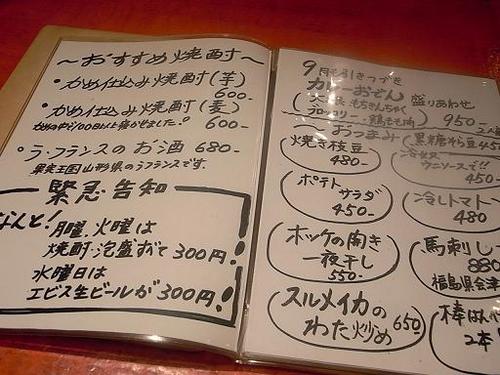 〜おすすめ焼酎〜
・かめ仕込み焼酎(芋)
600-
・かめ仕込み焼酎(麦)
600-
・ラ・フランスのお酒 680-
果実王国山形県のラフランスです。
緊急告知
なんと!
月曜、火曜は
焼酎・泡盛すべて300円!
水曜日は
エビス生ビールが300円!
9月も引きつづき
カレーおでん 盛りあわせ
950
おつまみ
焼き枝豆
480-
黒糖そら豆 450
450-
ポテトサラダ
450-
冷しトマト
480
ホッケの開き
一夜干し
550-
馬刺し
880
福島県会津
スルメイカの
わた炒め 650
2本